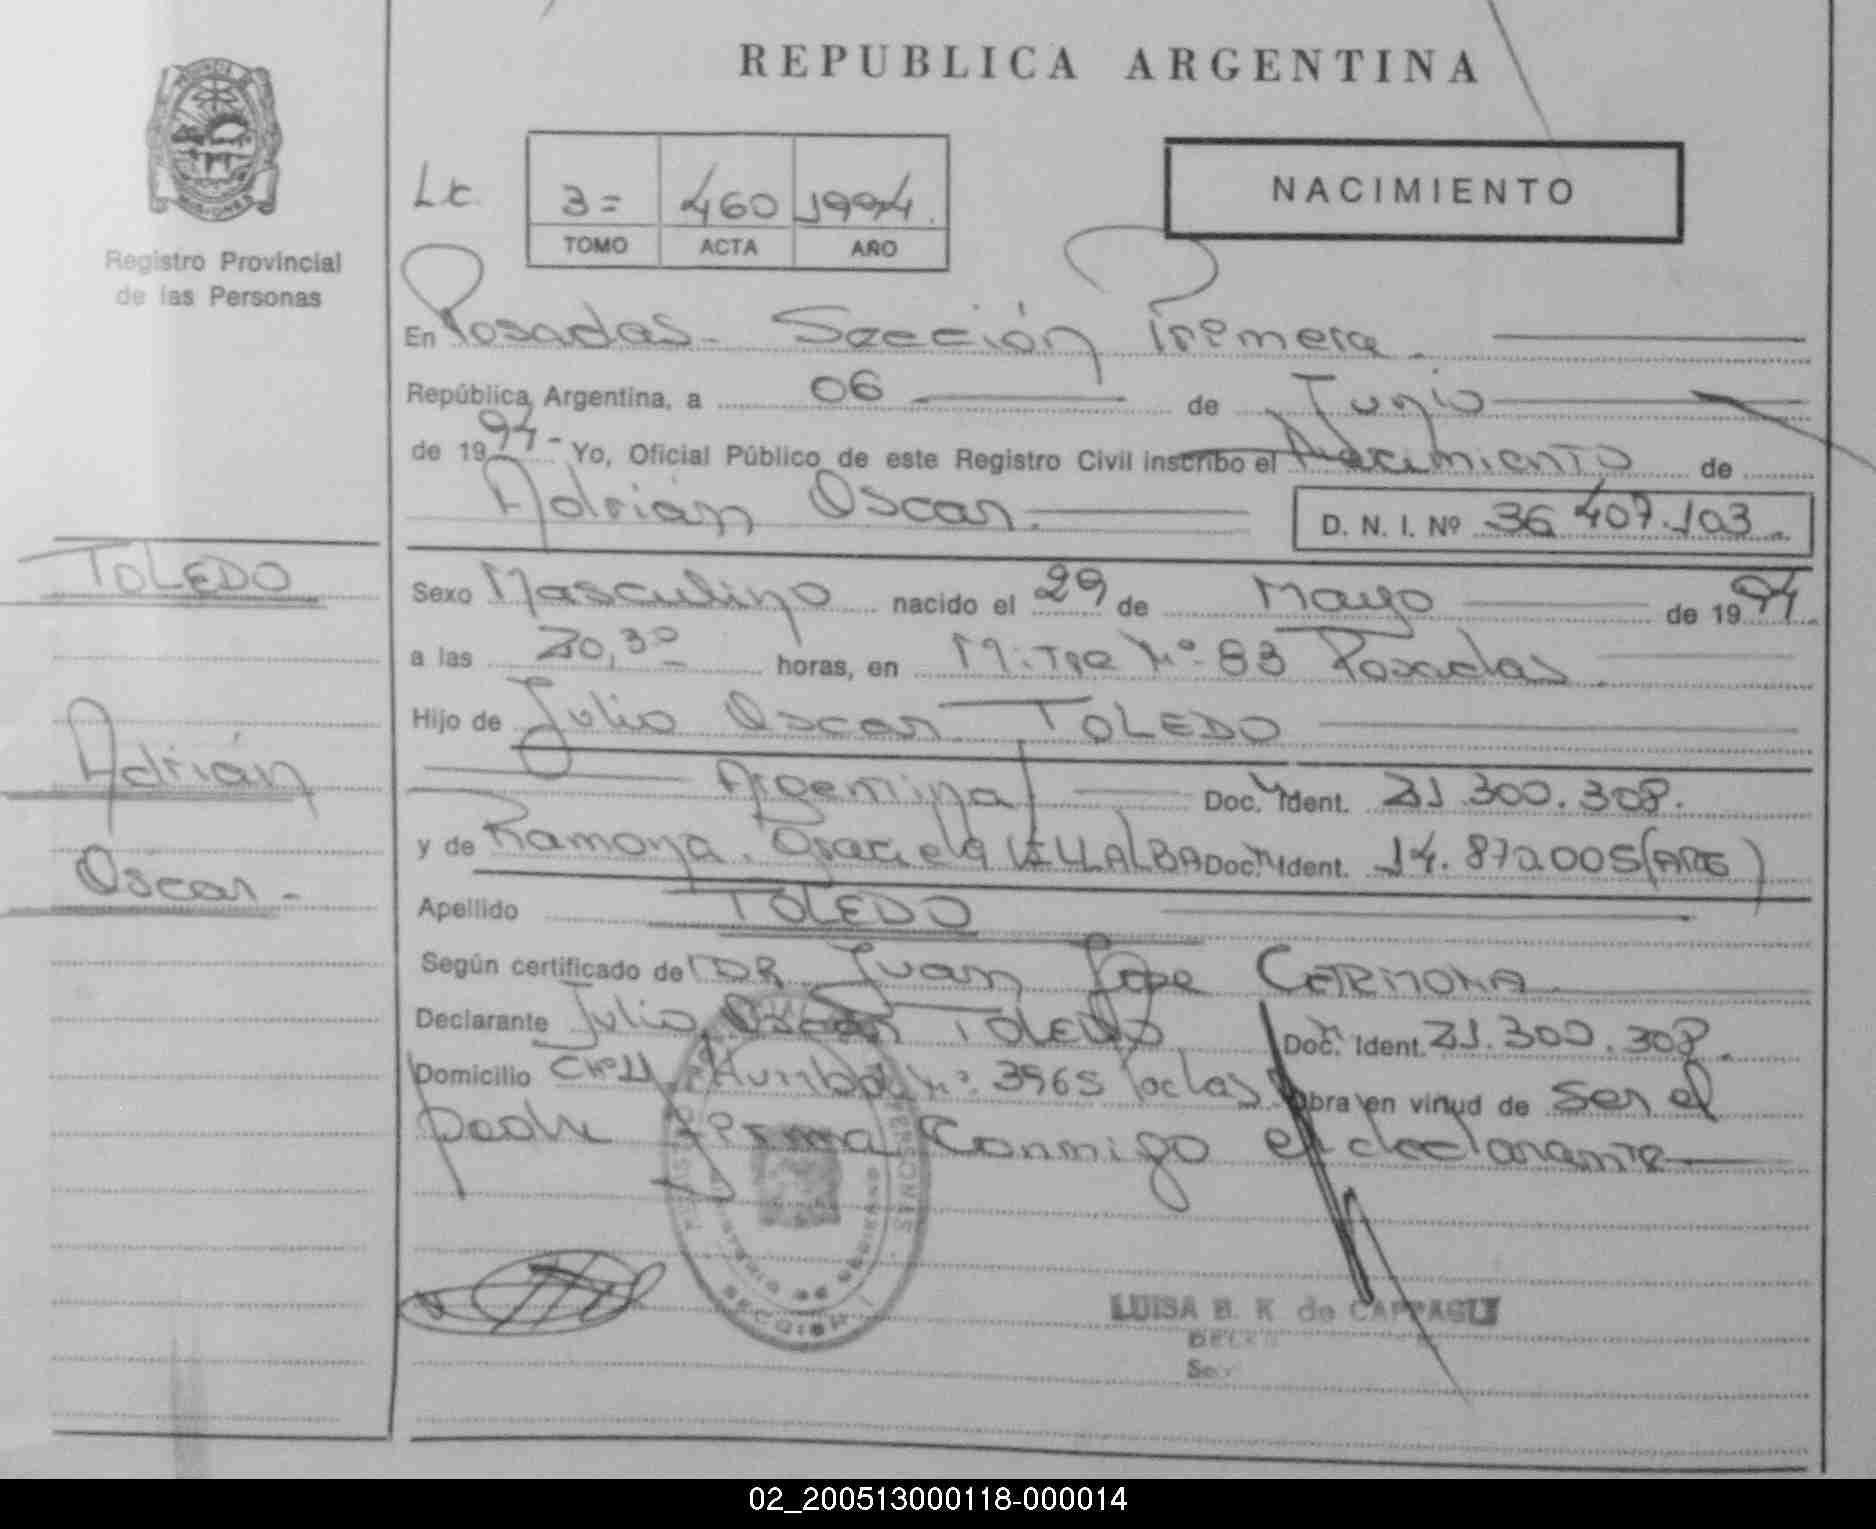 REPUBLICA ARGENTINA
PROVINCIA
MISIONES
Registro Provincial
de las Personas
3= 460 1994.
TOMO ACTA AÑO
NACIMIENTO
En Posadas - Sección Primera.
República Argentina, a 06 de Junio
de 1994- Yo, Oficial Público de este Registro Civil inscribo el Nacimiento de
Adrián Oscar. D. N. I. Nº 36.407.103.
TOLEDO
Adrián
Oscar -
Sexo Masculino nacido el 29 de Mayo de 1994.
a las 20,30 horas, en Mitre Nº 83 Posadas
Hijo de Julio Oscar TOLEDO
Argentina Doc. Ident. 21.300.308.
y de Ramona Graciela VILLALBA Doc. Ident. 14.872.005 (ARG)
Apellido TOLEDO
Según certificado de DR Juan Jose CARMONA
Declarante Julio Oscar TOLEDO Doc. Ident. 21.300.308.
Domicilio Nº 3965 Pdas Obra en virtud de Ser el
padre Firma Conmigo el declarante
SECCION 1
LUISA B. K de CAPPAGLI
02_200513000118-000014